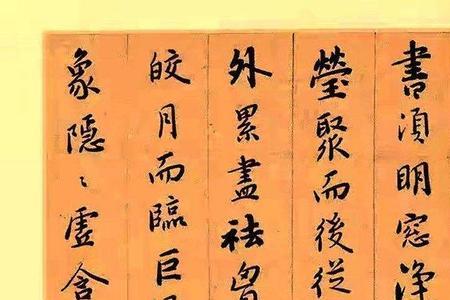 書須明窓浄
瑩聚而後從
外累盡祛
皎月而臨巨
象隱〻虛含